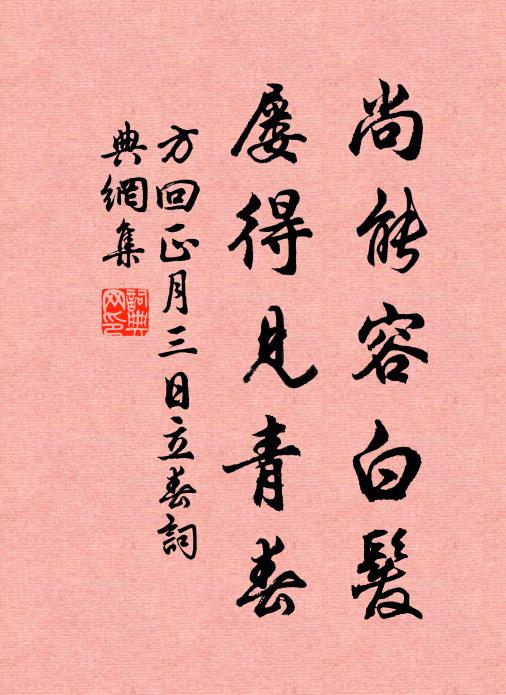 尚能容白髮
屡得見青春
方回正月三日立春詞
典網集
詞典網印